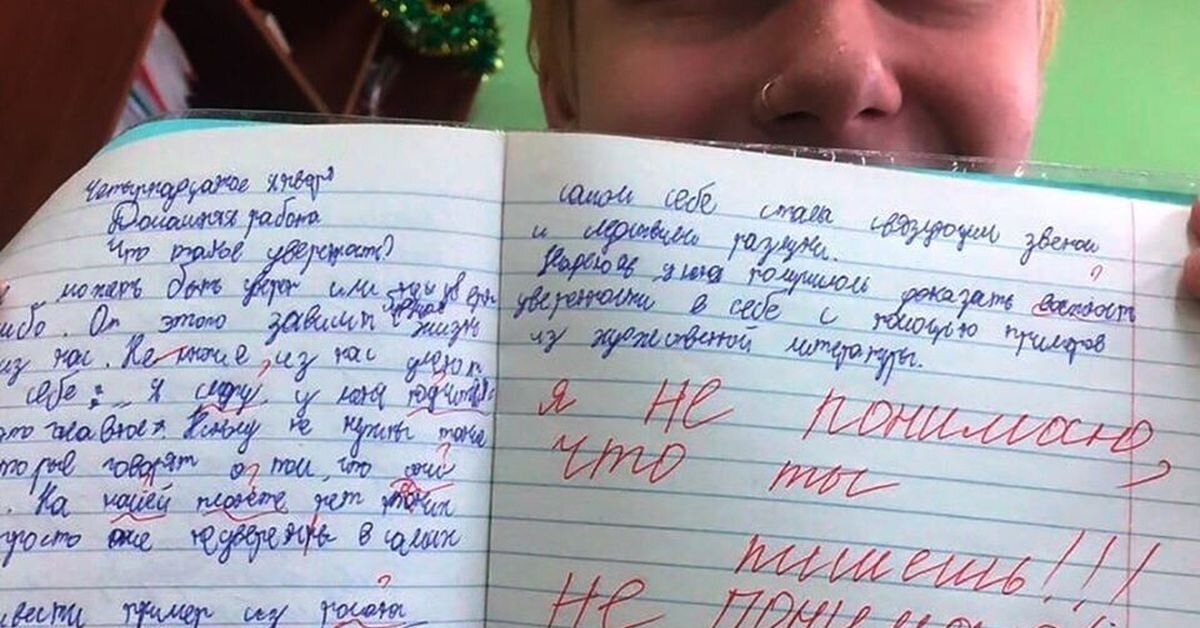 Четырнадцатое января
Домашняя работа
Что такое уверенность?
может быть уверен или
либо. От этого зависит жизнь
из нас. Не многие из нас умеют
себе: „ я у меня
это главное". Никому не нужны такие
торые говорят о том, что они
. На нашей планете нет таких
просто они не уверены в самих
вести пример из романа
самом себе стала связующим звеном
и разлуки.
Надеюсь у меня получилось доказать важность
уверенности в себе с помощью примеров
из художественной литературы.
я не понимаю,
что ты
пишешь!!!
Не